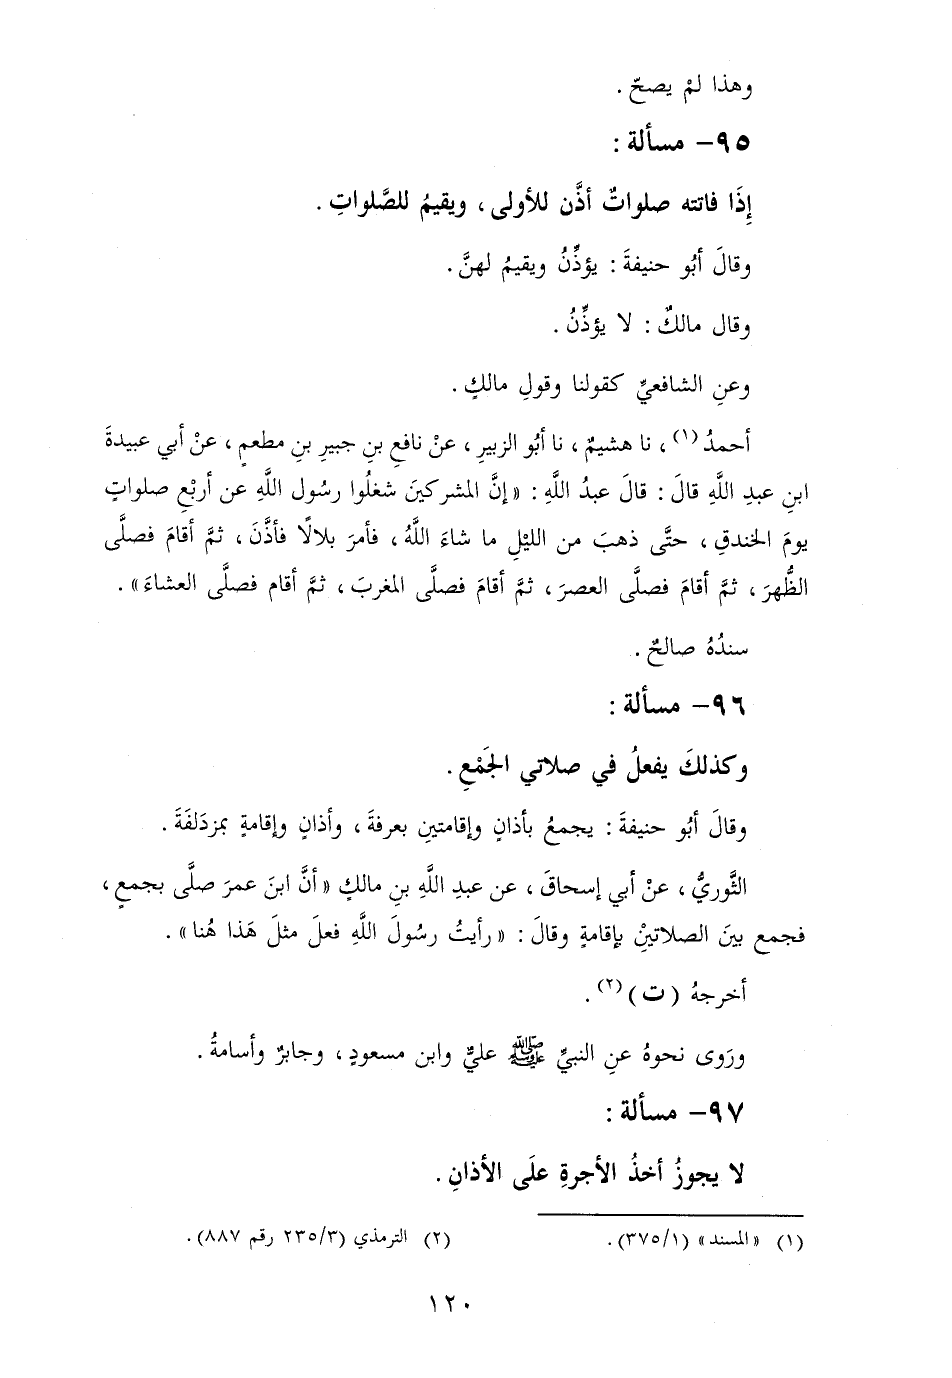 وهذا لمْ يصحّ .
٩٥– مسألة :
إِذَا فاتته صلواتٌ أذَّن للأولى ، ويقيمُ للصَّلواتِ .
وقالَ أبُو حنيفةَ : يؤذِّنُ ويقيمُ لهنَّ .
وقال مالكٌ : لا يؤذِّنُ .
وعنِ الشافعيِّ كقولنا وقولِ مالكٍ .
أحمدُ (١) ، نا هشيمٌ ، نا أبُو الزبيرِ ، عنْ نافعِ بنِ جبيرِ بنِ مطعمٍ ، عنْ أبي عبيدةَ
ابنِ عبدِ اللَّهِ قالَ : قالَ عبدُ اللَّهِ : « إنَّ المشركينَ شغلُوا رسُول اللَّهِ عن أربْعِ صلواتٍ
يومَ الخندقِ ، حتَّى ذهبَ من الليْلِ ما شاءَ اللَّهُ ، فأمرَ بلالًا فأذَّنَ ، ثمَّ أقامَ فصلَّى
الظُّهرَ ، ثمَّ أقامَ فصلَّى العصرَ ، ثمَّ أقامَ فصلَّى المغربَ ، ثمَّ أقام فصلَّى العشاءَ » .
سندُهُ صالحٌ .
٩٦– مسألة :
وكذلكَ يفعلُ في صلاتي الجَمْعِ .
وقالَ أبُو حنيفةَ : يجمعُ بأذانٍ وإقامتينِ بعرفةَ ، وأذانٍ وإقامةٍ بمزدَلفَةَ .
الثَّوريُّ ، عنْ أبي إسحاقَ ، عن عبدِ اللَّهِ بنِ مالكٍ « أنَّ ابنَ عمرَ صلَّى بجمعٍ ،
فجمع بينَ الصلاتينْ بإقامةٍ وقالَ : « رأيتُ رسُولَ اللَّهِ فعلَ مثلَ هَذا هُنا » .
أخرجهُ ( ت ) (٢) .
ورَوى نحوهُ عنِ النبيِّ ﷺ عليٌّ وابن مسعودٍ ، وجابرٌ وأسامةُ .
٩٧– مسألة :
لا يجوزُ أخذُ الأجرةِ علَى الأذانِ .
(١) « المسند » (٣٧٥/١) .
(٢) الترمذي (٢٣٥/٣ رقم ٨٨٧) .
١٢٠